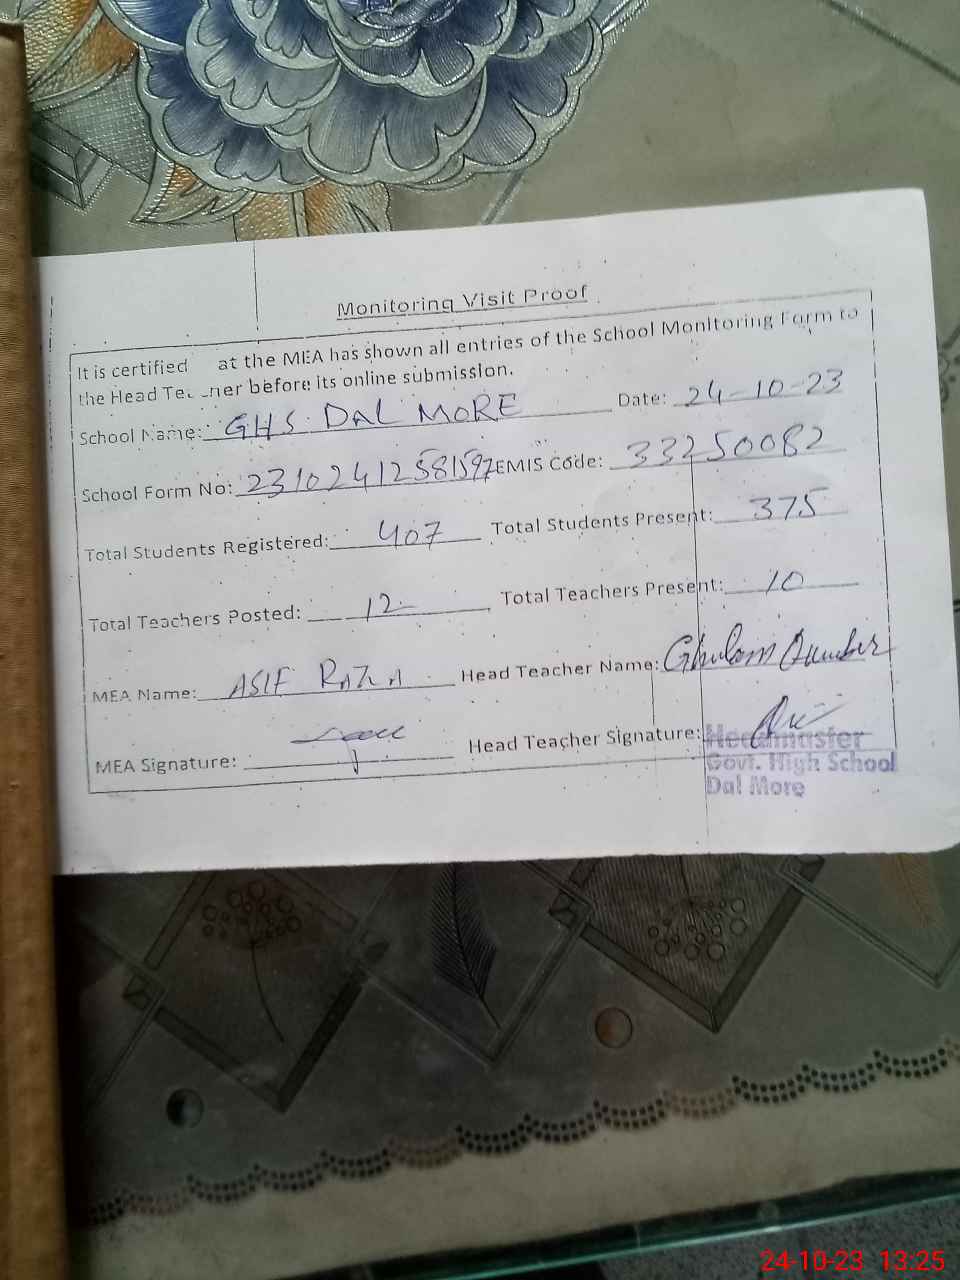 Monitoring Visit Proof
It is certified at the MEA has shown all entries of the School Monitoring Form to
the Head Te ner before its online submission.
School Name: GHS DAL MORE Date: 24-10-23
School Form No: 23102412581597 EMIS Code: 33250082
Total Students Registered: 407 Total Students Present: 375
Total Teachers Posted: 12 Total Teachers Present: 10
MEA Name: ASIF RAZA Head Teacher Name: Ghulam Qumber
MEA Signature: Head Teacher Signature:
Headmaster
Govt. High School
Dal More
24-10-23 13:25